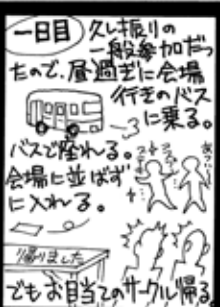 一日目
久し振りの
一般参加だっ
たので、昼過ぎに会場
行きのバス
に乗る。
バスで座れる。
会場に並ばず
に入れる。
帰りました
でもお目当てのサークル帰る